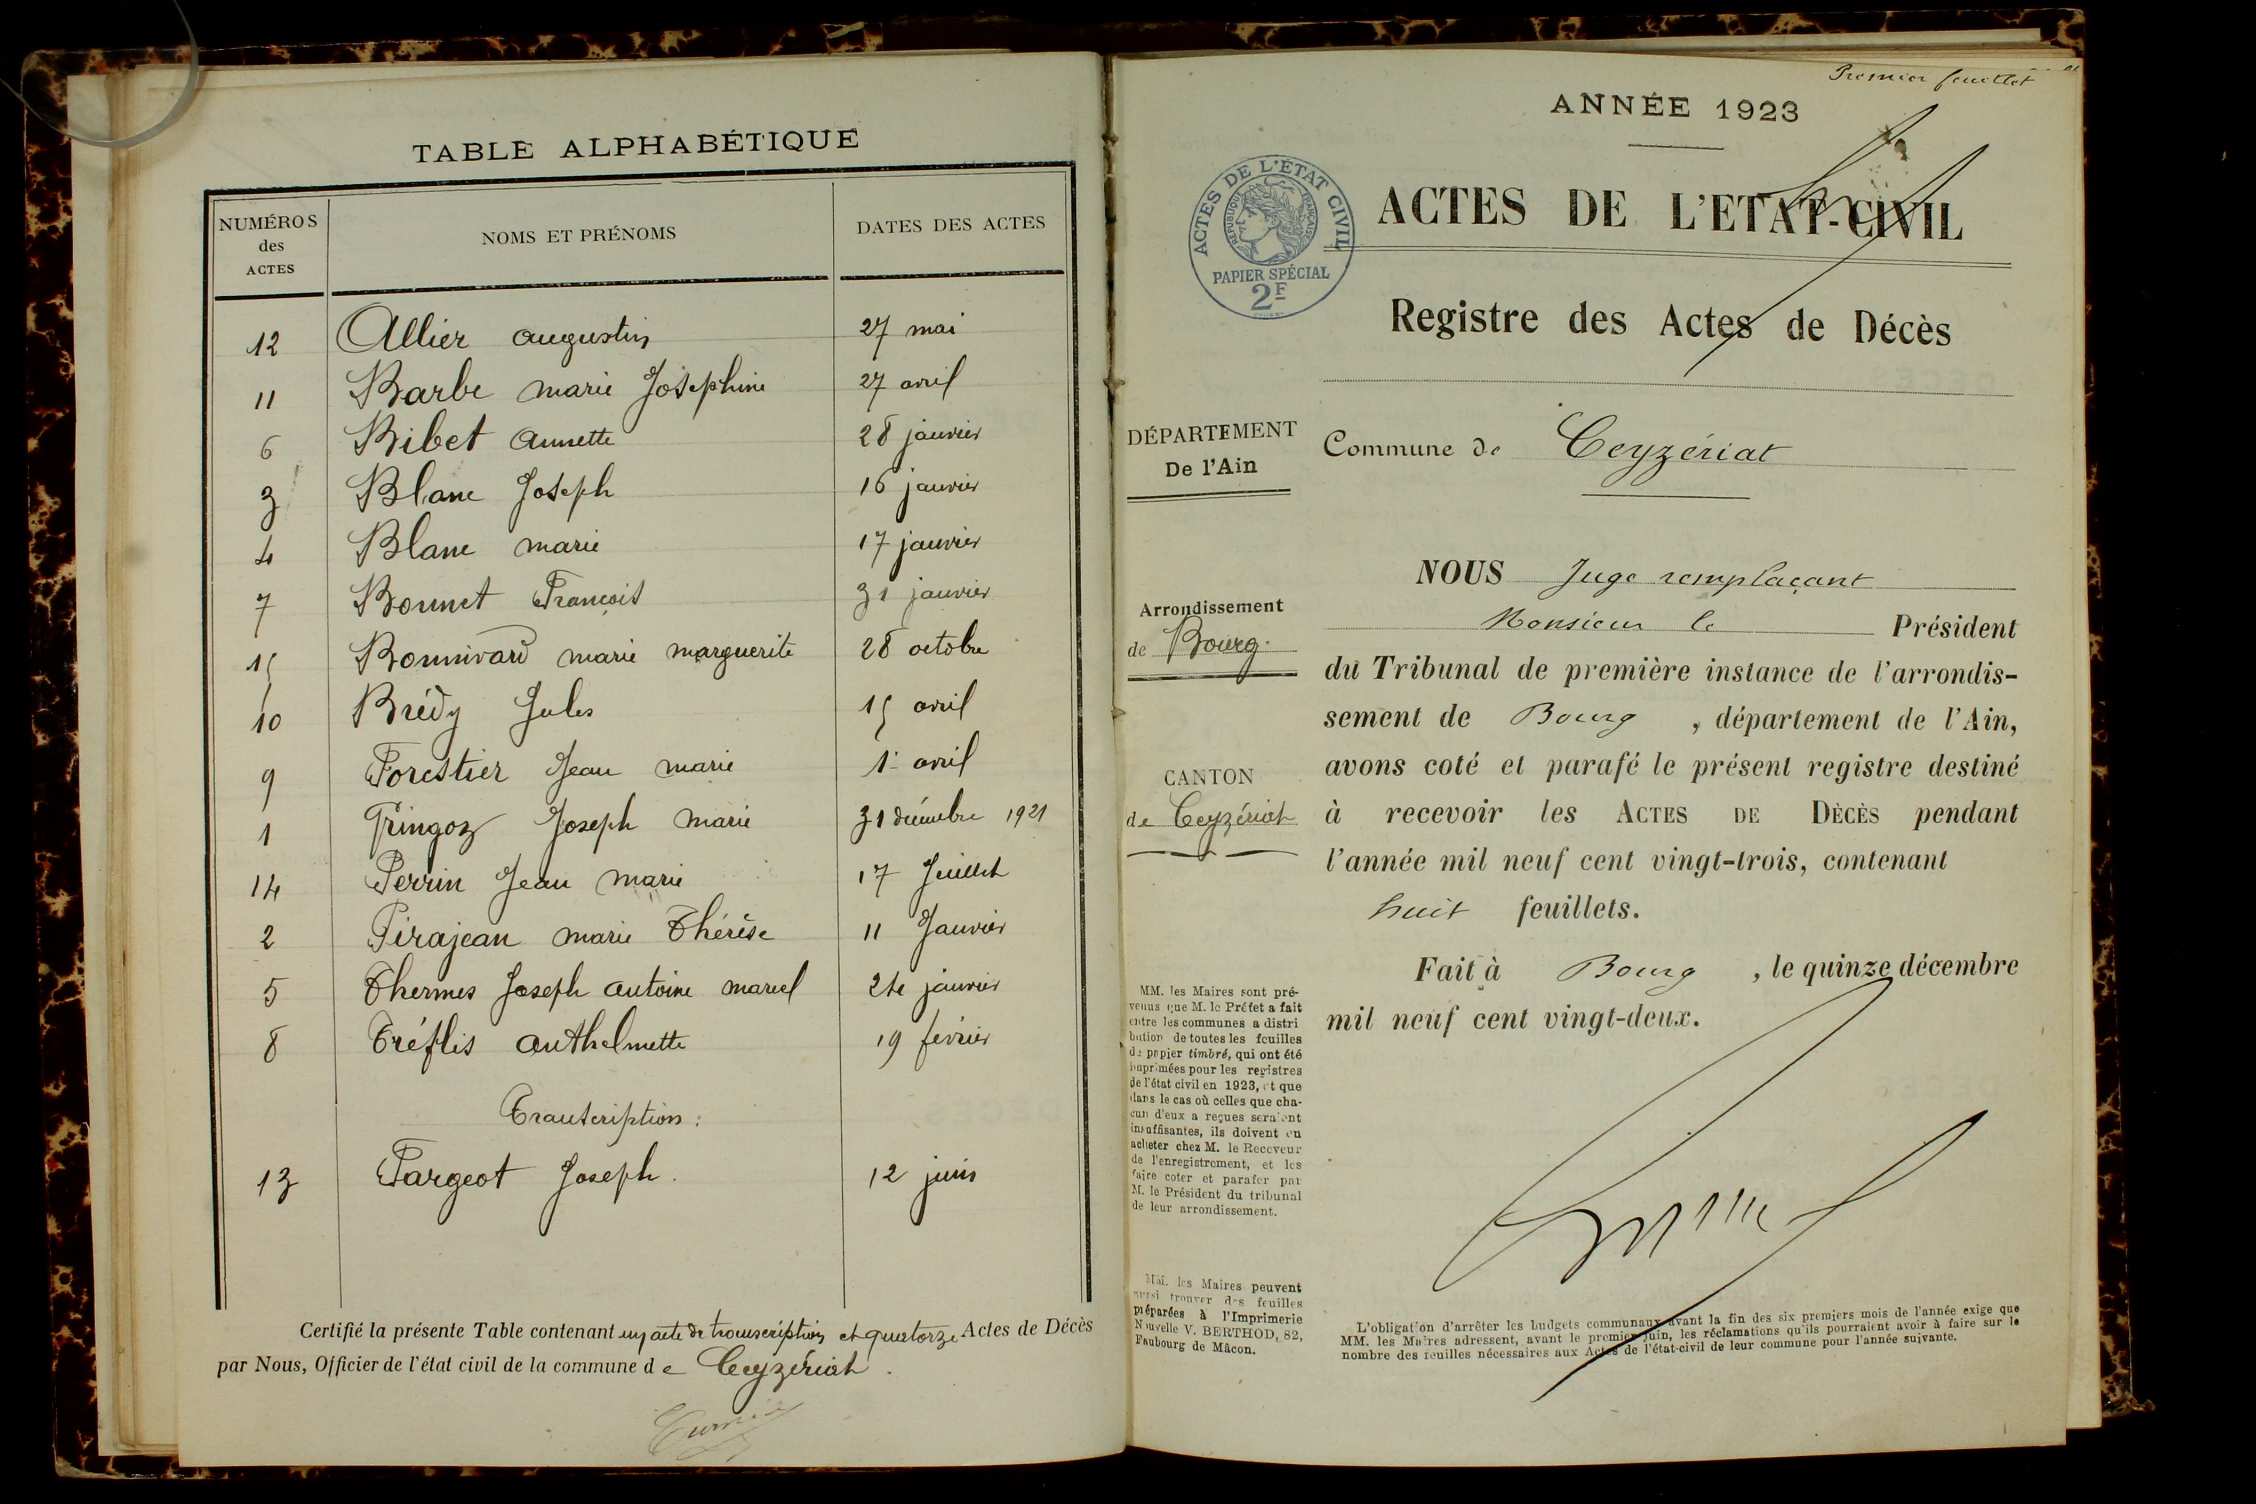 TABLE ALPHABÉTIQUE
NUMÉROS
des
ACTES
NOMS ET PRÉNOMS
DATES DES ACTES
12 Allier augustin 27 mai
11 Barbe marie Joséphine 27 avril
6 Bibet annette 28 janvier
3 Blanc Joseph 16 janvier
4 Blanc marie 17 janvier
7 Bonnet François 31 janvier
15 Bonnivard marie marguerite 28 octobre
10 Brédy Jules 15 avril
9 Forestier Jean marie 1er avril
1 Gringoz Joseph Marie 31 décembre 1921
14 Perrin Jean marie 17 Juillet
2 Pirajean marie Thérèse 11 Janvier
5 Thermes Joseph antoine marcel 24 janvier
8 Tréflis anthelmette 19 février
Transcription:
13 Fargeot Joseph. 12 juin
Certifié la présente Table contenant un acte de transcription et quatorze Actes de Décès
par Nous, Officier de l'état civil de la commune de Ceyzériat.
Premier feuillet
ANNÉE 1923
ACTES DE L'ETAT CIVIL
REPUBLIQUE FRANÇAISE
PAPIER SPÉCIAL
2F
ACTES DE L'ETAT-CIVIL
Registre des Actes de Décès
DÉPARTEMENT
De l'Ain
Commune de Ceyzériat
Arrondissement
de Bourg.
CANTON
de Ceyzériat
NOUS Juge remplaçant
Monsieur le Président
du Tribunal de première instance de l'arrondis-
sement de Bourg , département de l'Ain,
avons coté et parafé le présent registre destiné
à recevoir les ACTES DE DÈCÈS pendant
l'année mil neuf cent vingt-trois, contenant
huit feuillets.
Fait à Bourg , le quinze décembre
mil neuf cent vingt-deux.
MM. les Maires sont pré-
venus que M. le Préfet a fait
entre les communes a distri
bution de toutes les feuilles
de papier timbré, qui ont été
imprimées pour les registres
de l'état civil en 1923, et que
dans le cas où celles que cha-
cun d'eux a reçues seraient
insuffisantes, ils doivent en
acheter chez M. le Receveur
de l'enregistrement, et les
faire coter et parafer par
M. le Président du tribunal
de leur arrondissement.
MM. les Maires peuvent
aussi trouver des feuilles
préparées à l'Imprimerie
Nouvelle V. BERTHOD, 82,
Faubourg de Mâcon.
L'obligation d'arrêter les budgets communaux avant la fin des six premiers mois de l'année exige que
MM. les Maires adressent, avant le premier juin, les réclamations qu'ils pourraient avoir à faire sur le
nombre des feuilles nécessaires aux Actes de l'état-civil de leur commune pour l'année suivante.